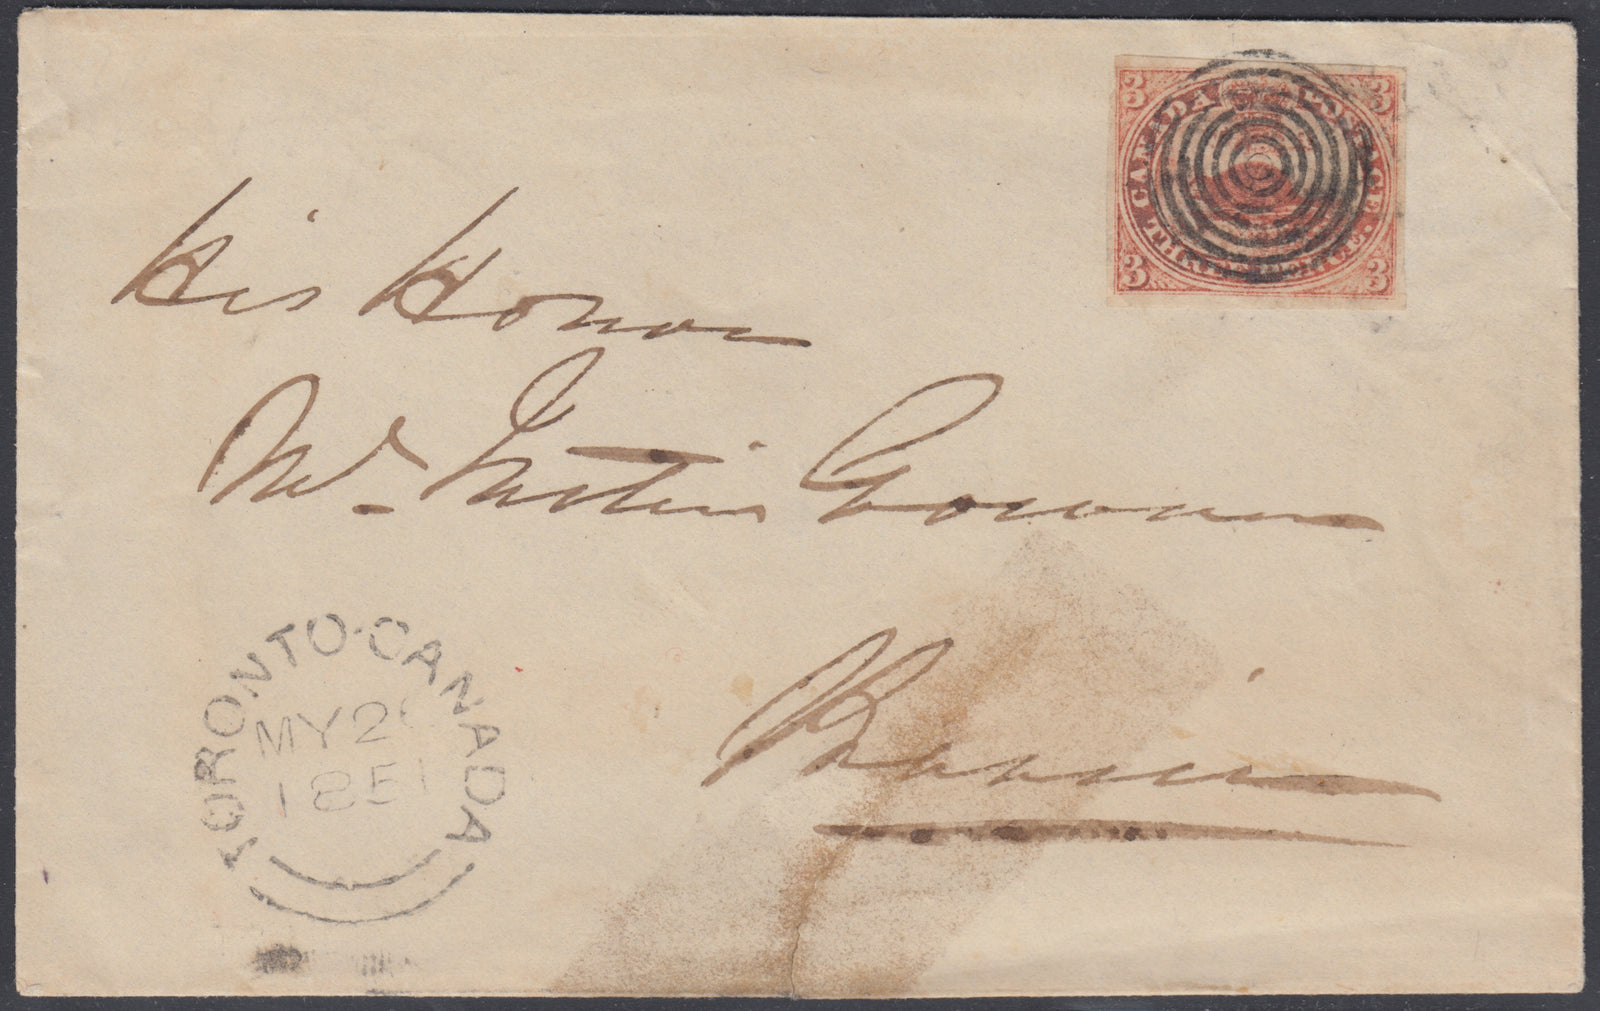 3 3
CANADA POSTAGE.
THREE PENCE
3 3
His Honor
Mr. Justice Gowan
Barrie
TORONTO · CANADA
MY 26
1851